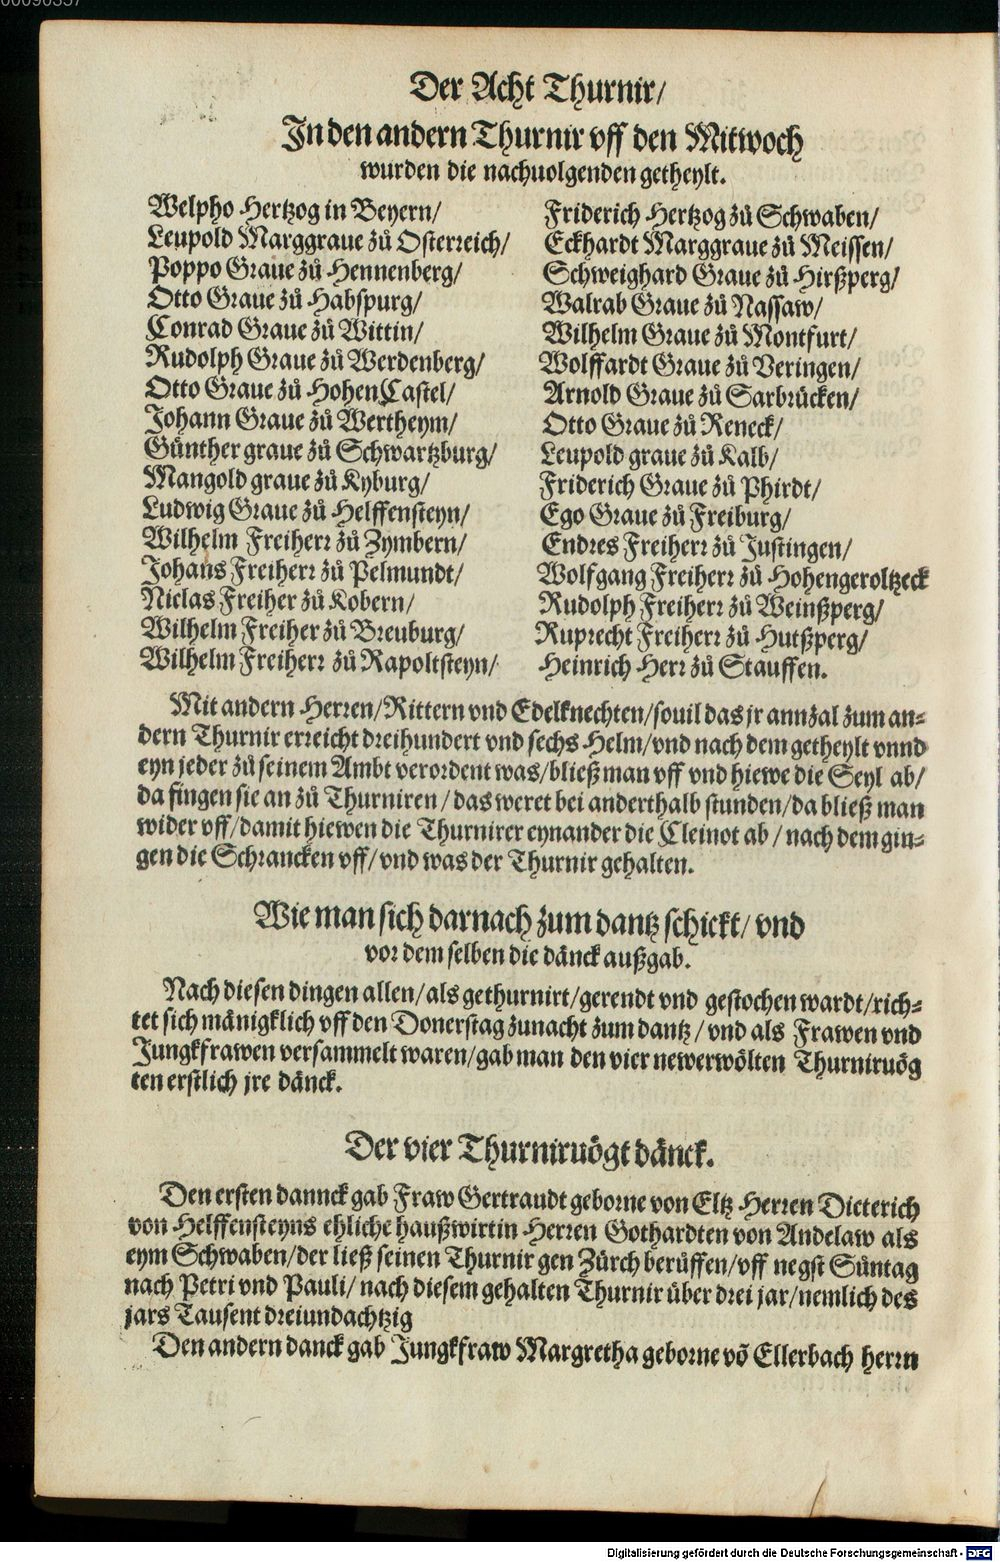 Der Acht Thurnir/
In den andern Thurnir vff den Mitwoch
wurden die nachuolgenden getheylt.
Welpho Hertzog in Beyern/
Leupold Marggraue zů Osterreich/
Poppo Graue zů Hennenberg/
Otto Graue zů Habspurg/
Conrad Graue zů Wittin/
Rudolph Graue zů Werdenberg/
Otto Graue zů HohenCastel/
Johann Graue zů Wertheym/
Günther graue zů Schwartzburg/
Mangold graue zů Kyburg/
Ludwig Graue zů Helffensteyn/
Wilhelm Freiherr zů Zymbern/
Johans Freiherr zů Pelmundt/
Niclas Freiher zů Kobern/
Wilhelm Freiher zů Breuburg/
Wilhelm Freiherr zů Rapoltsteyn/
Friderich Hertzog zů Schwaben/
Eckhardt Marggraue zů Meissen/
Schweighard Graue zů Hirßperg/
Walrab Graue zů Nassaw/
Wilhelm Graue zů Montfurt/
Wolffardt Graue zů Veringen/
Arnold Graue zů Sarbrücken/
Otto Graue zů Reneck/
Leupold graue zů Kalb/
Friderich Graue zů Phirdt/
Ego Graue zů Freiburg/
Endres Freiherr zů Justingen/
Wolfgang Freiherr zů Hohengeroltzeck
Rudolph Freiherr zů Weinßperg/
Ruprecht Freiherr zů Hutßperg/
Heinrich Herr zů Stauffen.
Mit andern Herren/Rittern vnd Edelknechten/souil das jr annzal zum an=
dern Thurnir erreicht dreihundert vnd sechs Helm/vnd nach dem getheylt vnnd
eyn jeder zů seinem Ambt verordent was/bließ man vff vnd hiewe die Seyl ab/
da fingen sie an zů Thurniren/das weret bei anderthalb stunden/da bließ man
wider vff/damit hiewen die Thurnirer eynander die Cleinot ab/nach dem gin=
gen die Schrancken vff/vnd was der Thurnir gehalten.
Wie man sich darnach zum dantz schickt/vnd
vor dem selben die dänck außgab.
Nach diesen dingen allen/als gethurnirt/gerendt vnd gestochen wardt/rich=
tet sich mänigklich vff den Donerstag zunacht zum dantz/vnd als Frawen vnd
Jungkfrawen versammelt waren/gab man den vier newerwölten Thurniruög
ten erstlich jre dänck.
Der vier Thurniruögt dänck.
Den ersten dannck gab Fraw Gertraudt geborne von Eltz Herren Dieterich
von Helffensteyns ehliche haußwirtin Herren Gothardten von Andelaw als
eym Schwaben/der ließ seinen Thurnir gen Zürch berüffen/vff negst Sůntag
nach Petri vnd Pauli/nach diesem gehalten Thurnir über drei jar/nemlich des
jars Tausent dreiundachtzig
Den andern danck gab Jungkfraw Margretha geborne võ Ellerbach herrn
Digitalisierung gefördert durch die Deutsche Forschungsgemeinschaft - DFG